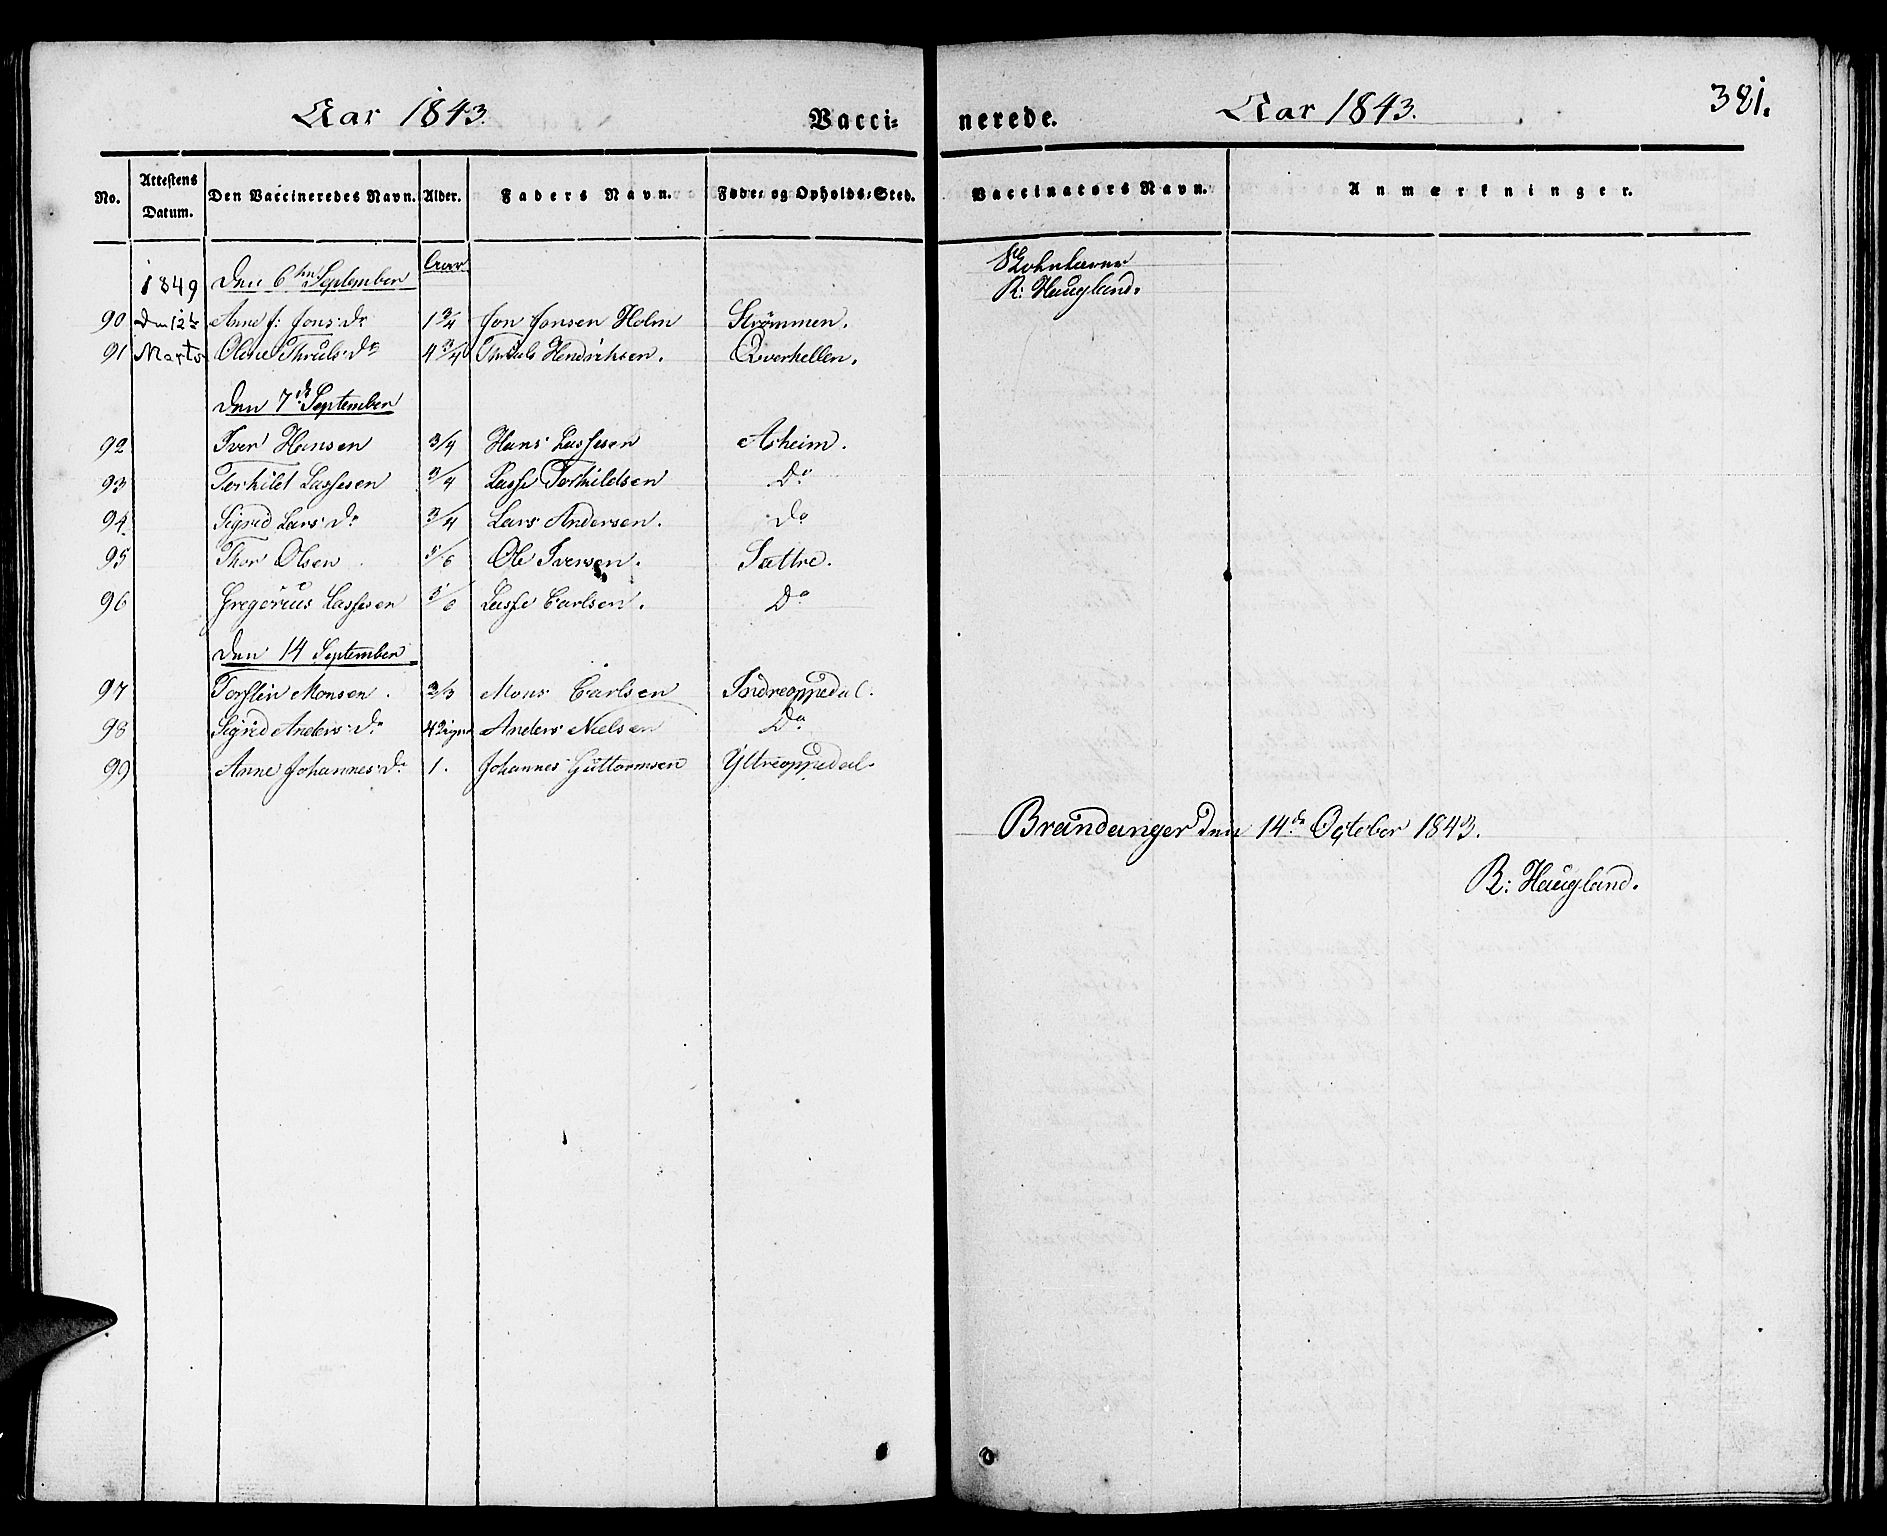 Aar 1843. Vacci= nerede. Aar 1843. 381.
No. Attestens Datum. Den Vaccineredes Navn. Alder. Faders Navn. Føde- og Opholds-Sted. Vaccinateurs Navn. Anmærkninger.
1849 Den 6te September Aar
R: Haugland.
90 Den 12te Anne J: Jons Dr 1 3/4 Jon Jonsen Holm Strømmen.
91 Marts Oline Thruls Dr 4 3/4 Thruls Hendrichsen. Qverhellen.
Den 7de September
92 Iver Hansen 3/4 Hans Lassesen Aheim.
93 Torkild Lassesen 3/4 Lasse Torkildsen Do
94. Sigrid Lars Dr 3/4 Lars Andersen. Do
95 Thor Olsen 5/6 Ole Iversen. Sættre.
96 Gregorius Lassesen 5/6 Lasse Carlsen. Do
Den 14 September
97 Torsten Monsen. 2/3 Mons Carlsen Indreoppedal.
98 Sigrid Anders Dr 4 Anders Nielsen Do
99 Anne Johannes Dr 1. Johannes Guttormsen Yttreoppedal.
Brandanger den 14de October 1843.
R: Haugland.